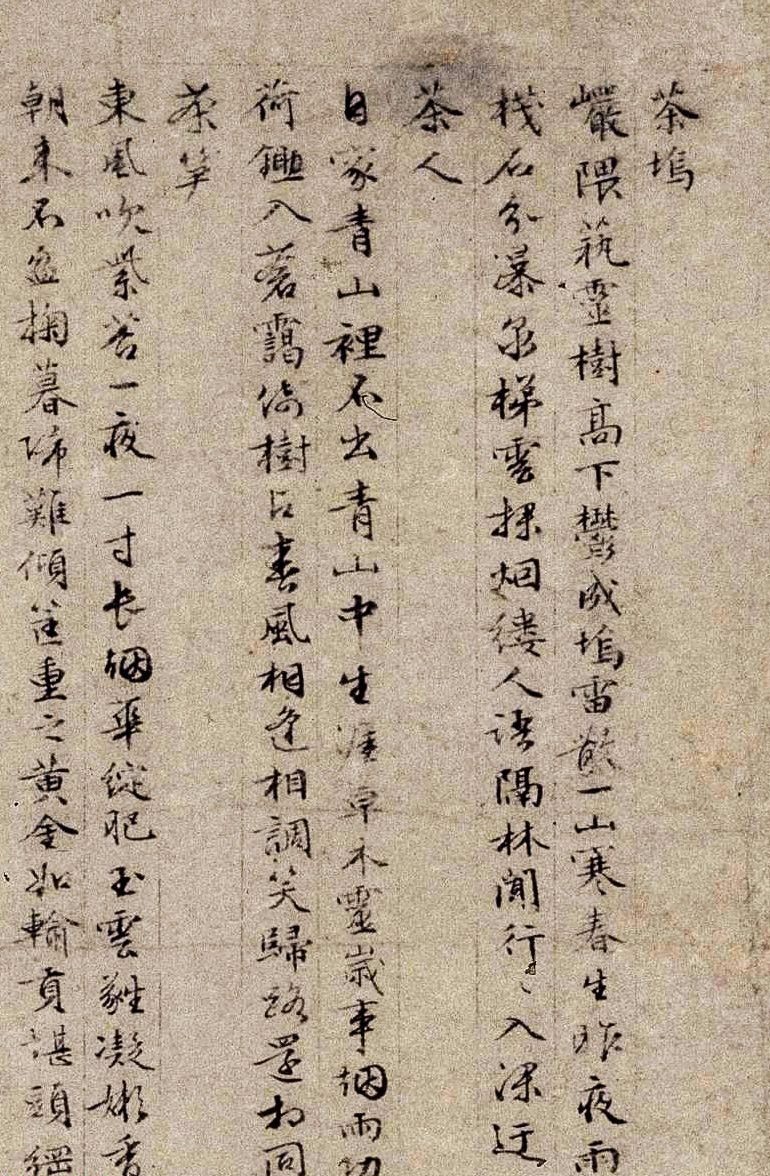 茶塢
巖隈藝靈樹高下鬱成塢雷散一山寒春生昨夜雨
棧石分瀑泉梯雲探烟縷人語隔林聞行〻入深迂
茶人
自家青山裡不出青山中生涯草木靈歲事烟雨功
荷鋤入蒼靄倚樹占春風相逢相調笑歸路還相同
茶筍
東風吹紫苔一夜一寸長烟華綻肥玉雲蕤凝嫩香
朝來不盈掬暮歸難傾筐重之黃金如輸貢堪頭綱